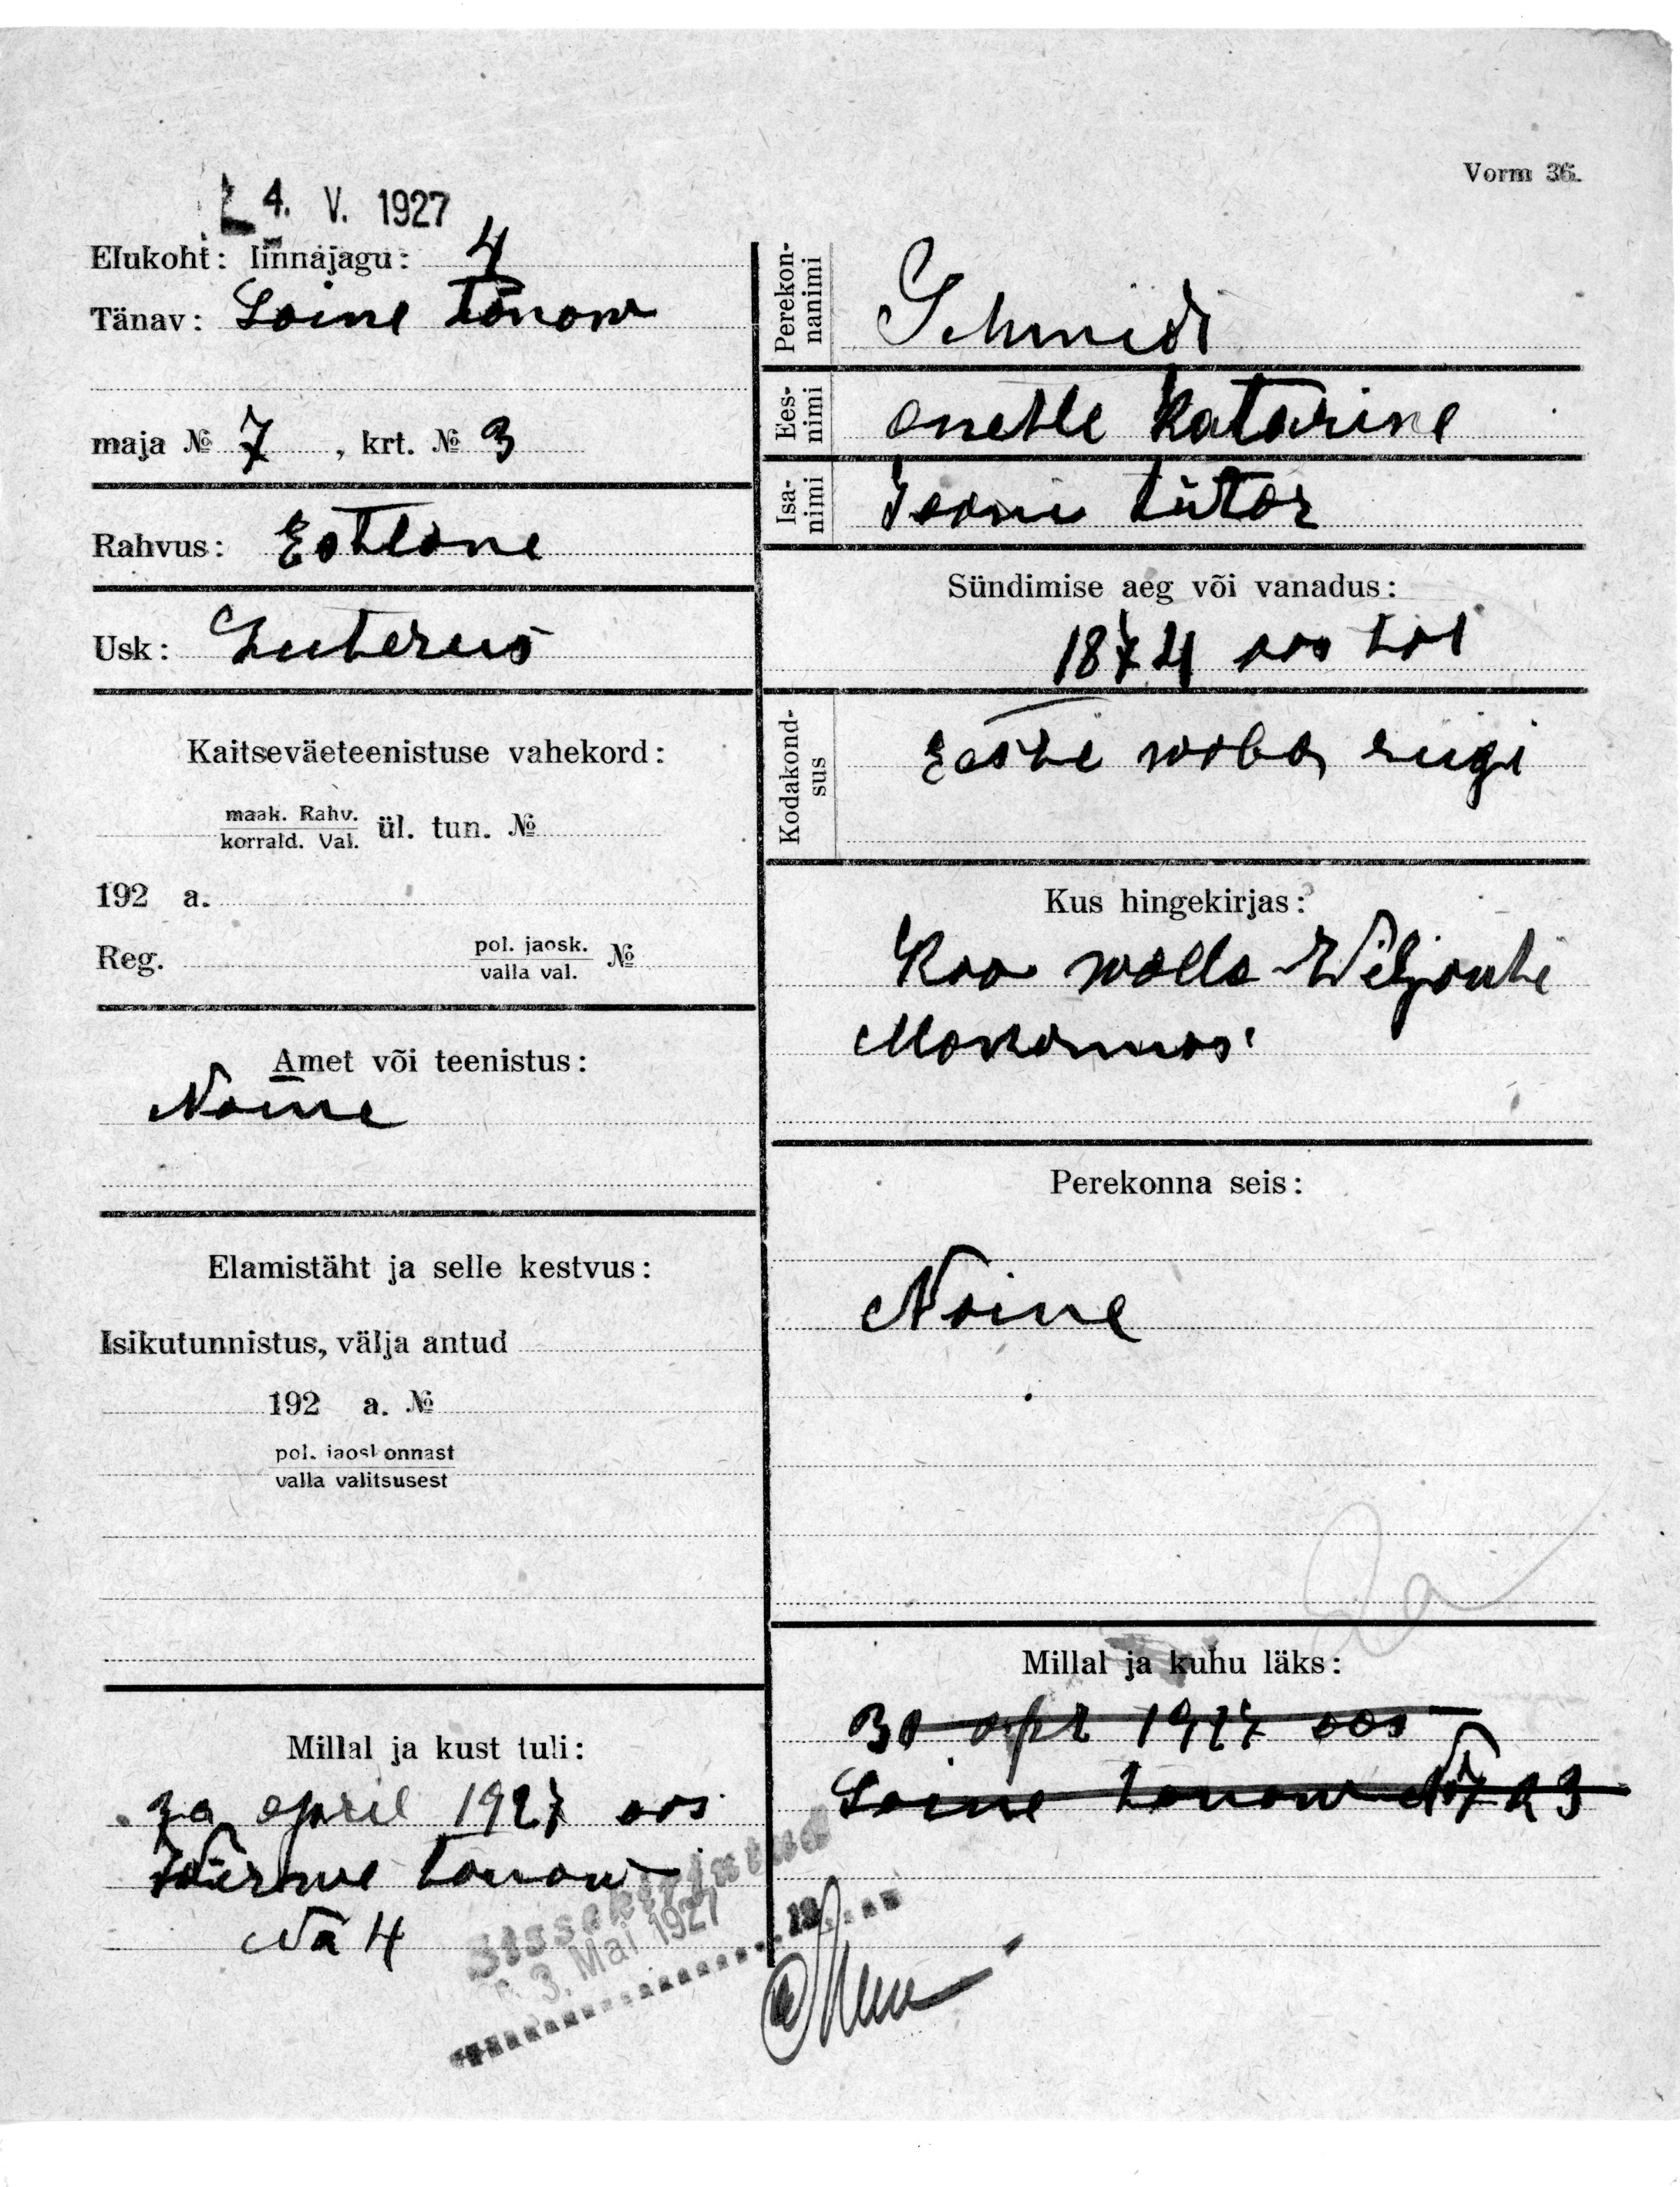 Vorm 36.
4. V. 1927
Elukoht: linnajagu: 4
Tänav: Laine tänaw
maja № 7, krt. № 3
Rahvus: Estlane
Usk: Luterus
Kaitseväeteenistuse vahekord:
maak. Rahv.
korrald. Val. ül. tun. №
192 a.
Reg. pol. jaosk.
valla val. №
Amet või teenistus:
Naine
Elamistäht ja selle kestvus:
Isikutunnistus, välja antud
192 a. №
pol. jaoskonnast
valla valitsusest
Millal ja kust tuli:
30 april 1927 aas
tänaw
№ 4
Sissekirjutud
3. Mai 1927
Perekon-
nanimi
Schmidt
Ees-
nimi
Anette Katarine
Isa-
nimi
Jaani tütar
Sündimise aeg või vanadus:
1874 aas tal
Kodakond-
sus
Eesti waba riigi
Kus hingekirjas:
Koo walla Wiljanti
Makonnas
Perekonna seis:
Naine
Millal ja kuhu läks:
30 apr 1927 aas
Laine tänaw № 7 k 3